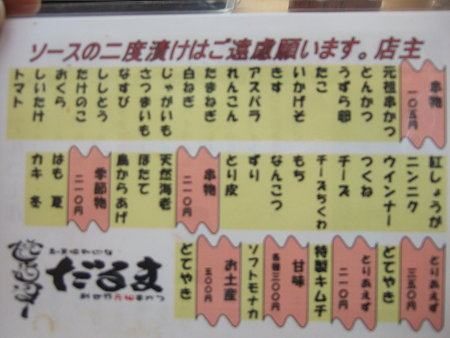 ソースの二度漬けはご遠慮願います。店主
串物
一〇五円
元祖串かつ
とんかつ
うずら卵
たこ
いかげそ
きす
アスパラ
れんこん
たまねぎ
白ねぎ
じゃがいも
さつまいも
なすび
ししとう
たけのこ
おくら
しいたけ
トマト
紅しょうが
ニンニク
ウインナー
つくね
チーズ
チーズちくわ
もち
なんこつ
ずり
とり皮
串物
二一〇円
天然海老
ほたて
鳥からあげ
季節物
二一〇円
はも 夏
カキ 冬
とりあえず
三五〇円
どてやき
とりあえず
二一〇円
特製キムチ
甘味
各種三〇〇円
ソフトモナカ
お土産
五〇〇円
どてやき
だるま